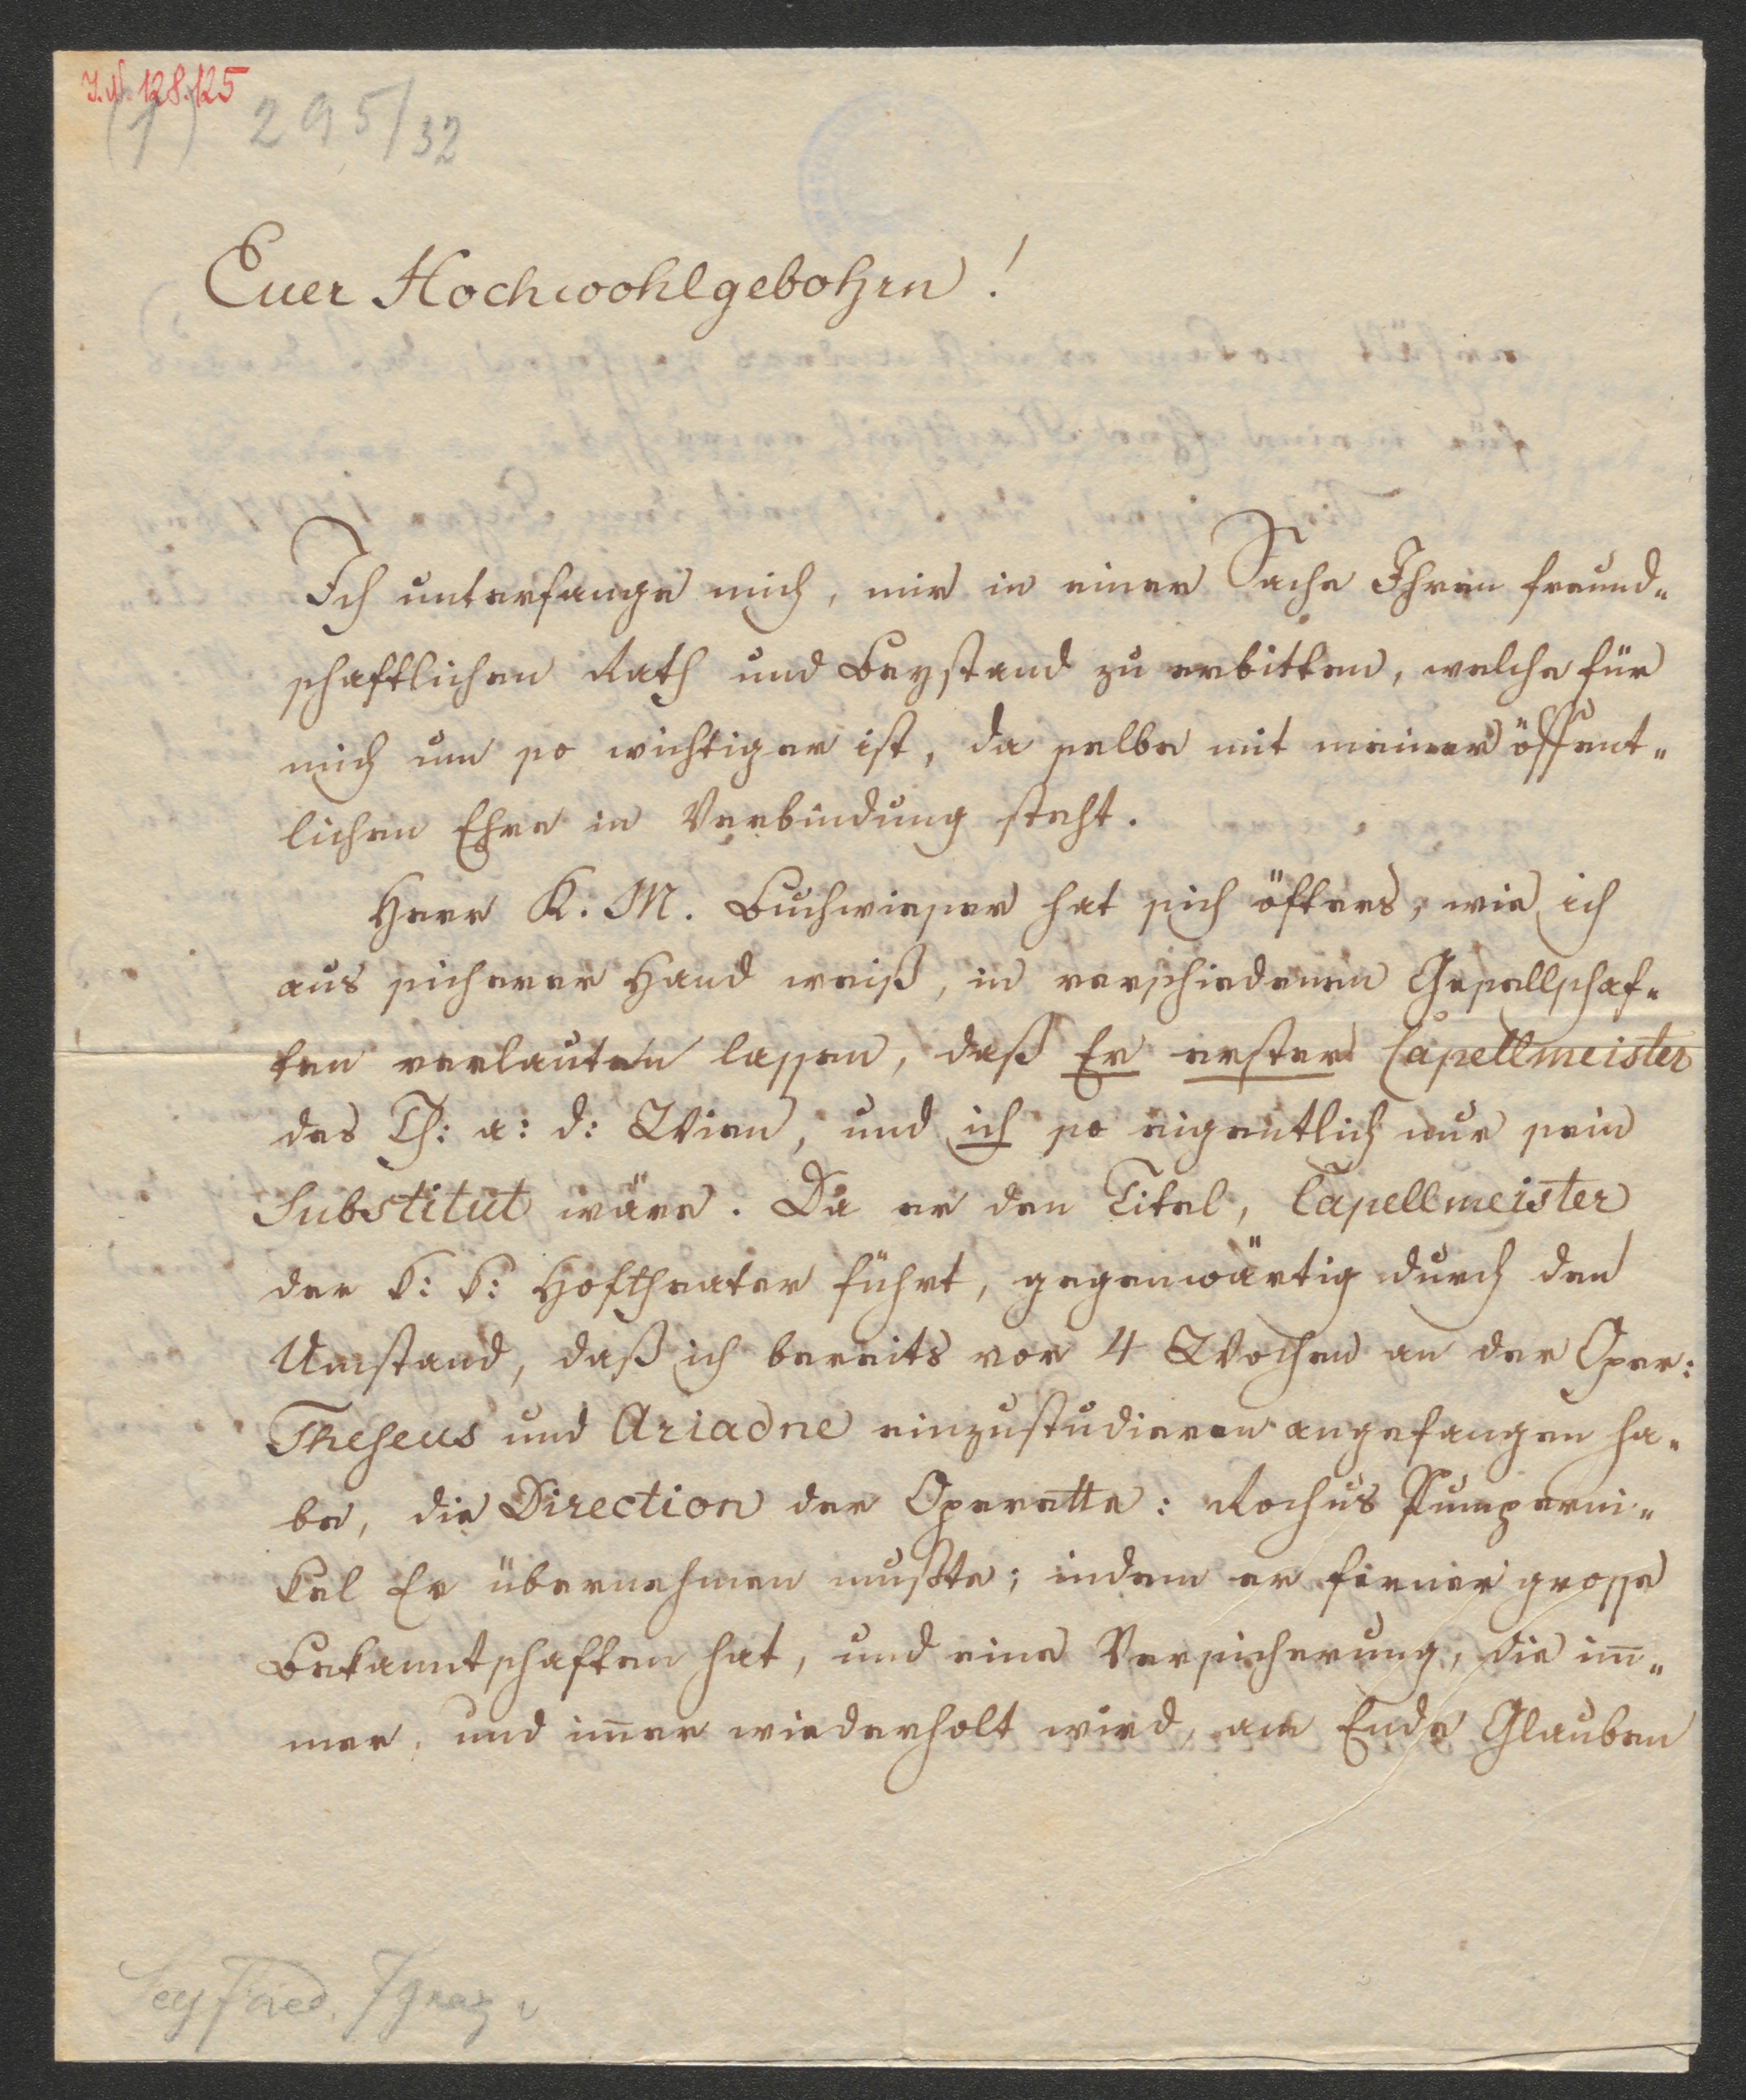 I.N. 128.125
(1) 295/32
Euer Hochwohlgebohrn!
Ich unterfange mich, mir in einer Sache Ihren freund-
schaftlichen Rath und Beystand zu erbitten, welche für
mich um so wichtiger ist, da selbe mit meiner öffent-
lichen Ehre in Verbindung steht.
Herr K. M. Buchwieser hat sich öfters, wie ich
aus sicherer Hand weiß, in verschiedenen Gesellschaf-
ten verlauten lassen, daß Er erster Capellmeister
des Th: a: d: Wien, und ich so eigentlich nur sein
Substitut wäre. Da er den Titel, Capellmeister
der k: k: Hoftheater führt, gegenwärtig durch den
Umstand, daß ich bereits vor 4 Wochen an der Oper:
Theseus und Ariadne einzustudieren angefangen ha-
be, die Direction der Operette: Rochus Pumperni-
kel Er übernehmen mußte; indem er ferner grosse
Bekanntschaften hat, und eine Versicherung, die im̅-
mer, und im̅er wiederholt wird, am Ende Glauben
Seyfried, Ignaz v